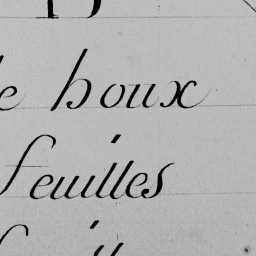 e houx
feuilles